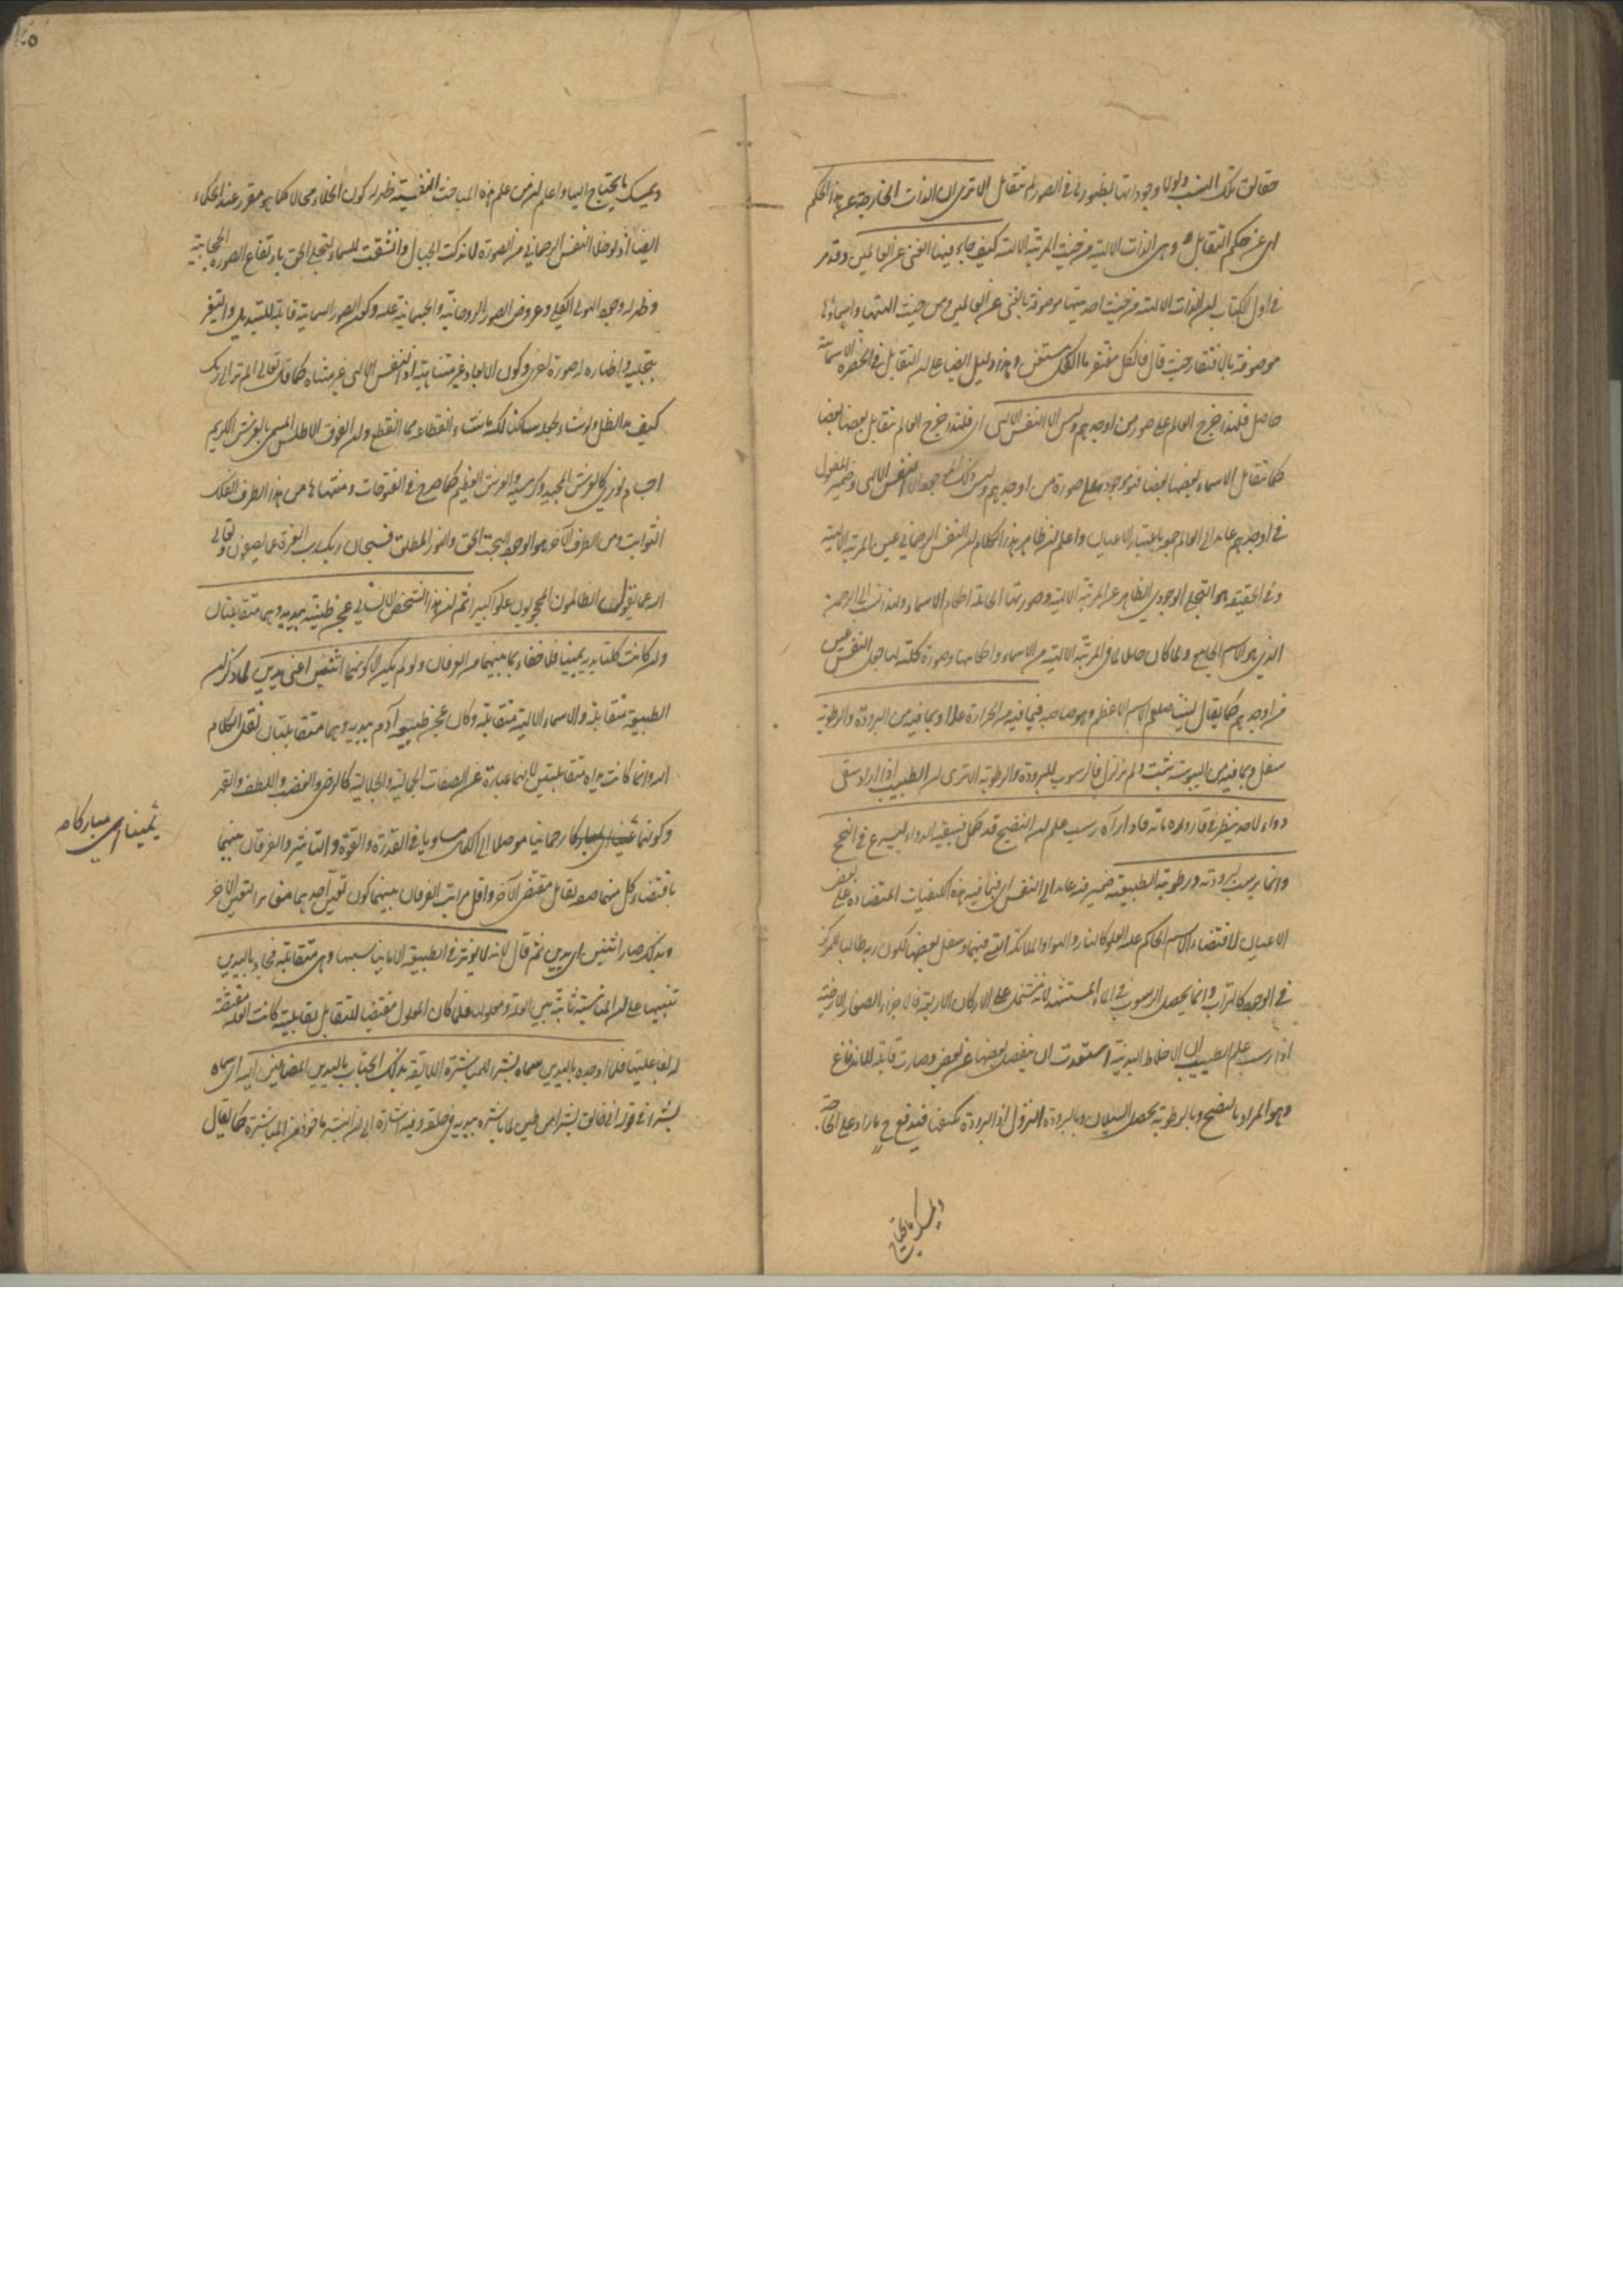 حقائق تلك النسب ولولا وجوداتها بظهورها في الصور لم تتقابل الا ترى الى الذات الخارجة عن هذا الحكم
اي عن حكم التقابل وهي الذات الالهية من حيث المرتبة الالهية كيف جاء فيها الغنى عن العالمين وقد مر
في اول الكتاب ان الذات الالهية من حيث احديتها موصوفة بالغنى عن العالمين ومن حيث الهيتها واسمائها
موصوفة بالافتقار حيث قال فالكل مفتقر ما الكل مستغن وهذا دليل ايضا على ان التقابل في الحضرة الاسمائية
حاصل فلهذا خرج العالم على صورة من اوجدهم وليس الا النفس الالهي اي فلهذا خرج العالم تتقابل بعضها بعضا
كما تتقابل الاسماء بعضها بعضا فهو موجود على صورة من اوجدهم وليس ذلك الموجد الا النفس الالهي وضمير المفعول
في اوجدهم عائد الى العالم جمع باعتبار الاعيان واعلم ان ظاهر هذا الكلام ان النفس الرحماني عين المرتبة الالهية
وفي الحقيقة هو التجلي الوجودي الظاهر عن المرتبة الالهية وصورتها الحاملة احكام الاسماء ولهذا نسب الى الرحمن
الذي هو الاسم الجامع ولما كان حاملا لما في المرتبة الالهية من الاسماء واحكامها وصورة كلية لها جعل النفس عين
من اوجدهم كما يقال لنبينا صلعم الاسم الاعظم وهو صاحبه فبما فيه من الحرارة علا وبما فيه من البرودة والرطوبة
سفل وبما فيه من اليبوسة ثبت ولم يتزلزل فالرسوب للبرودة والرطوبة الا ترى ان الطبيب اذا اراد سقي
دواء لاحد ينظر في قارورة مائه فاذا رآه رسب علم ان النضج قد كمل فيسقيه الدواء ليسرع في النجح
وانما يرسب لبرودته ورطوبته الطبيعية ضمير فيه عائد الى النفس اي فبما فيه هذه الكيفيات المتضادة علا بعض
الاعيان لاقتضاء الاسم الحاكم عليه العلو كالنار والهواء والملائكة التي فيهما وسفل بعضها لكون ربه طالبا للمركز
في الوجه كالتراب وانما يحصل الرسوب في الماء المستشهد لانه مشتمل على الاركان الاربعة فالاجزاء الصغار الارضية
اذا رسب علم الطبيب ان الاخلاط البدنية استعدت ان ينفصل بعضها عن بعض وصارت قابلة للاندفاع
وهو المراد بالنضج وبالرطوبة يحصل السيلان وبالبرودة النزول اذ البرودة
ويمسك ما يحتاج
ويمسك ما يحتاج اليها واعلم ان من علم هذه المباحث النفيسة ظهر له كون الخلاء محالا كما هو مقرر عند الحكماء
ايضا اذ لو خلا النفس الرحماني من الصورة لاندكت الجبال وانشقت السماء لتجلي الحق بارتفاع الصورة الحجابية
وظهر له وجه الهيولى الكلي وعروض الصور الروحانية والجسمانية عليه وكون الصور السمائية قابلة للتبديل والتغير
بتجليه واظهاره له صورة اخرى وكون الابعاد غير متناهية اذ النفس الالهي غير متناه كما قال تعالى الم تر الى ربك
كيف مد الظل ولو شاء لجعله ساكنا لكنه ما شاء انقطاعه مما انقطع وان الفوق الاطلس المسمى بالعرش الكريم
اجسام نورية كالعرش المجيد وكرسيه والعرش العظيم كما صرح في الفتوحات ومنتهاها من هذا الطرف الفلك
الثوابت ومن الطرف الآخر هو الوجود البحت الحق والنور المطلق فسبحان ربك رب العزة عما يصفون وتعالى
الله عما يقول الظالمون المحجوبون علوا كبيرا ثم ان هذا الشخص الانساني عجن طينته بيديه وهما متقابلتان
وان كانت كلتا يديه يمينا فلا خفاء بما بينهما من الفرقان ولو لم يكن الا كونهما اثنين اعني يدين لما ذكر ان
الطبيعة متقابلة والاسماء الالهية متقابلة وكان عجن طبيعة آدم بيديه وهما متقابلتان نقل الكلام
اليه وانما كانت يداه متقابلتين لانهما عبارة عن الصفات الجمالية والجلالية كالرضى والغضب واللطف والقهر
وكونهما رحمانيا موصلا الى الكمال مساويا في القدرة والقوة والتأثير والفرقان بينهما
يمينا اي مباركا
باقتضاء كل منهما ضد تقابل مقتضى الآخر واقل مراتب الفرقان بينهما كون تعين احدهما مغايرا لتعين الآخر
وبذلك صار اثنين اي يدين ثم قال لانه لا يؤثر في الطبيعة الا ما يناسبها وهي متقابلة فجاء باليدين
تنبيها على ان المناسبة ثابتة بين العلة ومعلولها فلما كان المعلول مقتضيا للتقابل بقابليته كانت العلة مقتضية
له بفاعليتها فلما اوجده باليدين سماه بشرا للمباشرة اللائقة بذلك الجناب باليدين المضافتين اليه اي سماه
بشرا في قوله اني خالق بشرا من طين لما باشره بيديه في خلقه وفيه اشارة الى ان البشر ماخوذ من المباشرة كما يقال